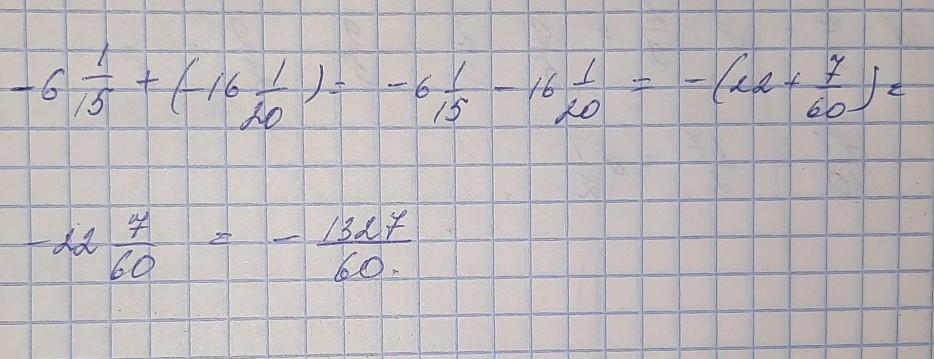 -6 1/15 + (-16 1/20) = -6 1/15 - 16 1/20 = -(22 + 7/60) =
-22 7/60 = - 1327/60.